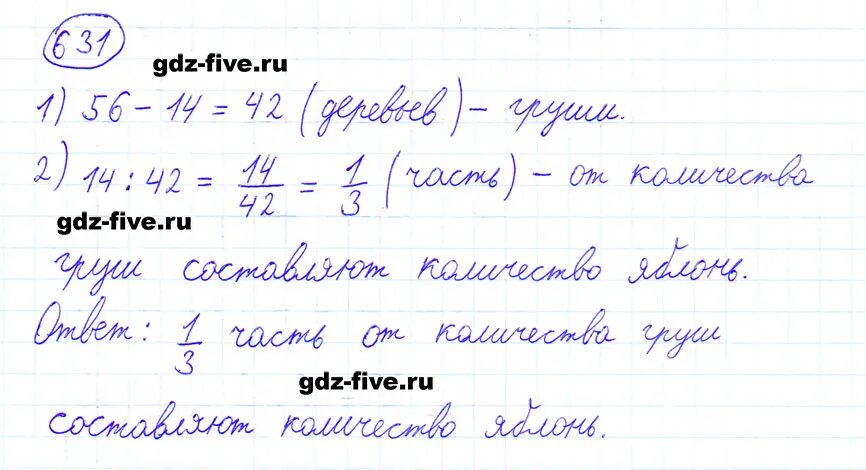 631
gdz-five.ru
1) 56 - 14 = 42 (деревьев) - груши.
2) 14 : 42 = 14/42 = 1/3 (часть) - от количества
gdz-five.ru
груш составляют количество яблонь.
Ответ: 1/3 часть от количества груш
gdz-five.ru
составляют количество яблонь.